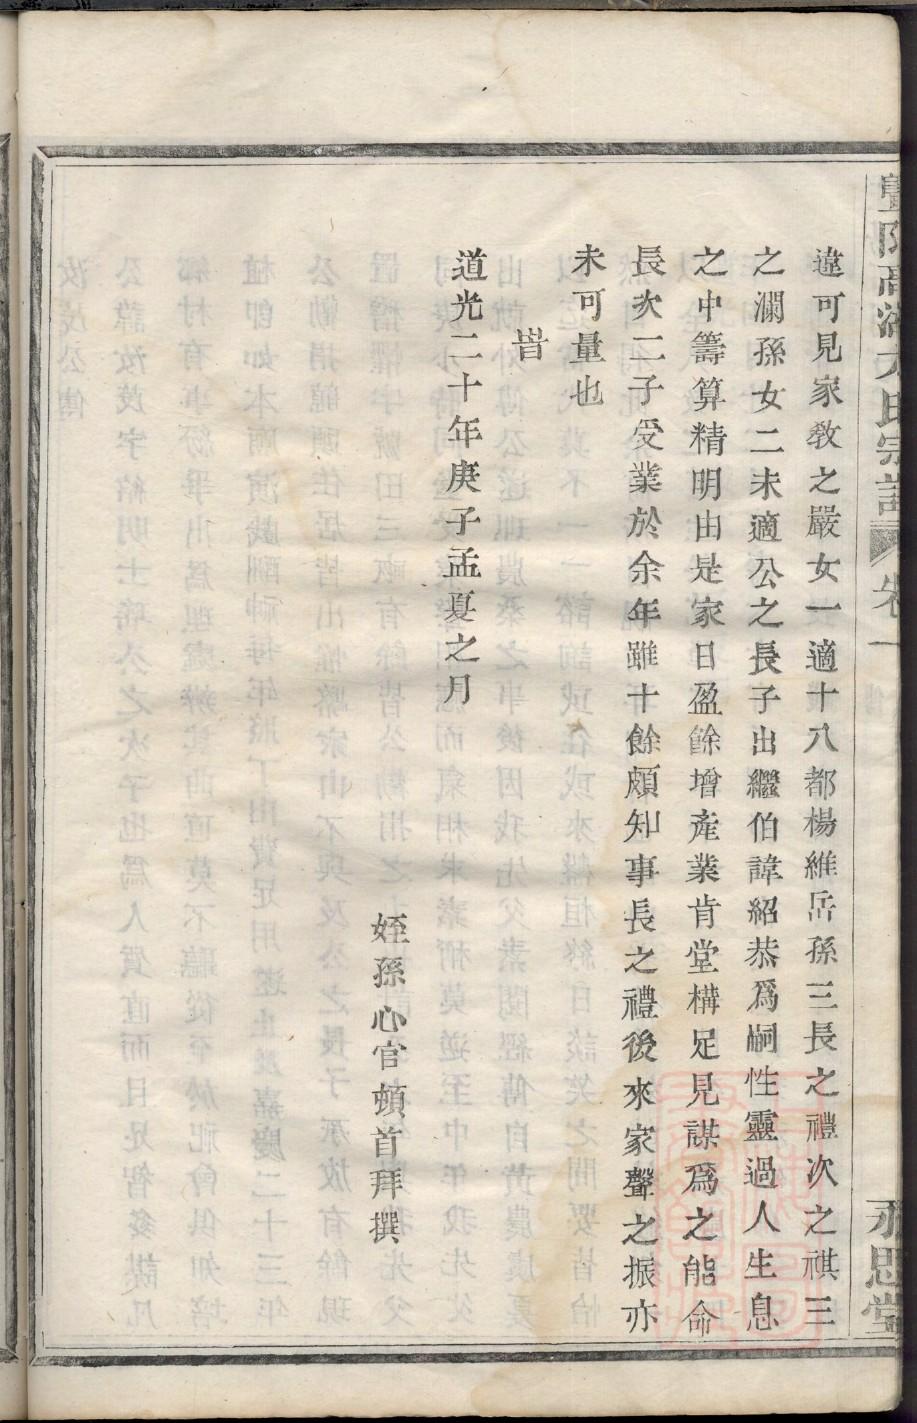 暨陽高湖方氏宗譜 卷一 永思堂
遠可見家敎之嚴女一適十八都楊維岳孫三長之禮次之祺三
之瀾孫女二未適公之長子出繼伯諱紹恭爲嗣性靈過人生息
之中籌算精明由是家日盈餘增產業肯堂構足見謀爲之能命
長次二子受業於余年雖十餘頗知事長之禮後來家聲之振亦
未可量也
旹
道光二十年庚子孟夏之月
姪孫心官頓首拜撰